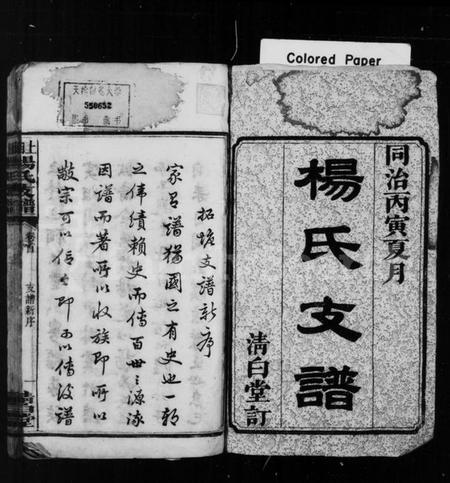 Colored Paper
同治丙寅夏月
楊氏支譜
清白堂訂
支譜新序
家有譜猶國之有史也一部
之偉績賴史而傳百世之源流
因譜而著所以收族即所以
敬宗可以信今即可以傳後譜
楊氏支譜
卷首
支譜新序
清白堂
550652